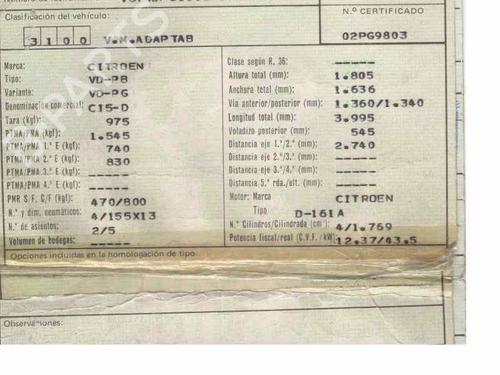 Clasificación del vehículo:
3 1 0 0 V.M.ADAPTAB
N.º CERTIFICADO
02PG9803
Marca: CITROEN
Tipo: VD-PB
Variante: VD-PG
Denominación comercial: C15-D
Tara (kgf): 975
PTMA/PMA (kgf): 1.545
PTMA/PMA 1.º E (kgf): 740
PTMA/PMA 2.º E (kgf): 830
PTMA/PMA 3.º E (kgf): -----
PTMA/PMA 4.º E (kgf): -----
PMR S/F, C/F (kgf): 470/800
N.º y dim. neumáticos: 4/155X13
N.º de asientos: 2/5
Volumen de bodegas: -----
Clase según R. 36: -----
Altura total (mm): 1.805
Anchura total (mm): 1.636
Via anterior/posterior (mm): 1.360/1.340
Longitud total (mm): 3.995
Voladizo posterior (mm): 545
Distancia eje 1.º/2.º (mm): 2.740
Distancia eje 2.º/3.º (mm): -----
Distancia eje 3.º/4.º (mm): -----
Distancia 5.ª rda./ult. (mm): -----
Motor: Marca CITROEN
Tipo D-161A
N.º Cilindros/Cilindrada (cm³): 4/1.769
Potencia fiscal/real (C.V.F./kW) 12.37/43.5
Opciones incluidas en la homologación de tipo:
Observaciones: